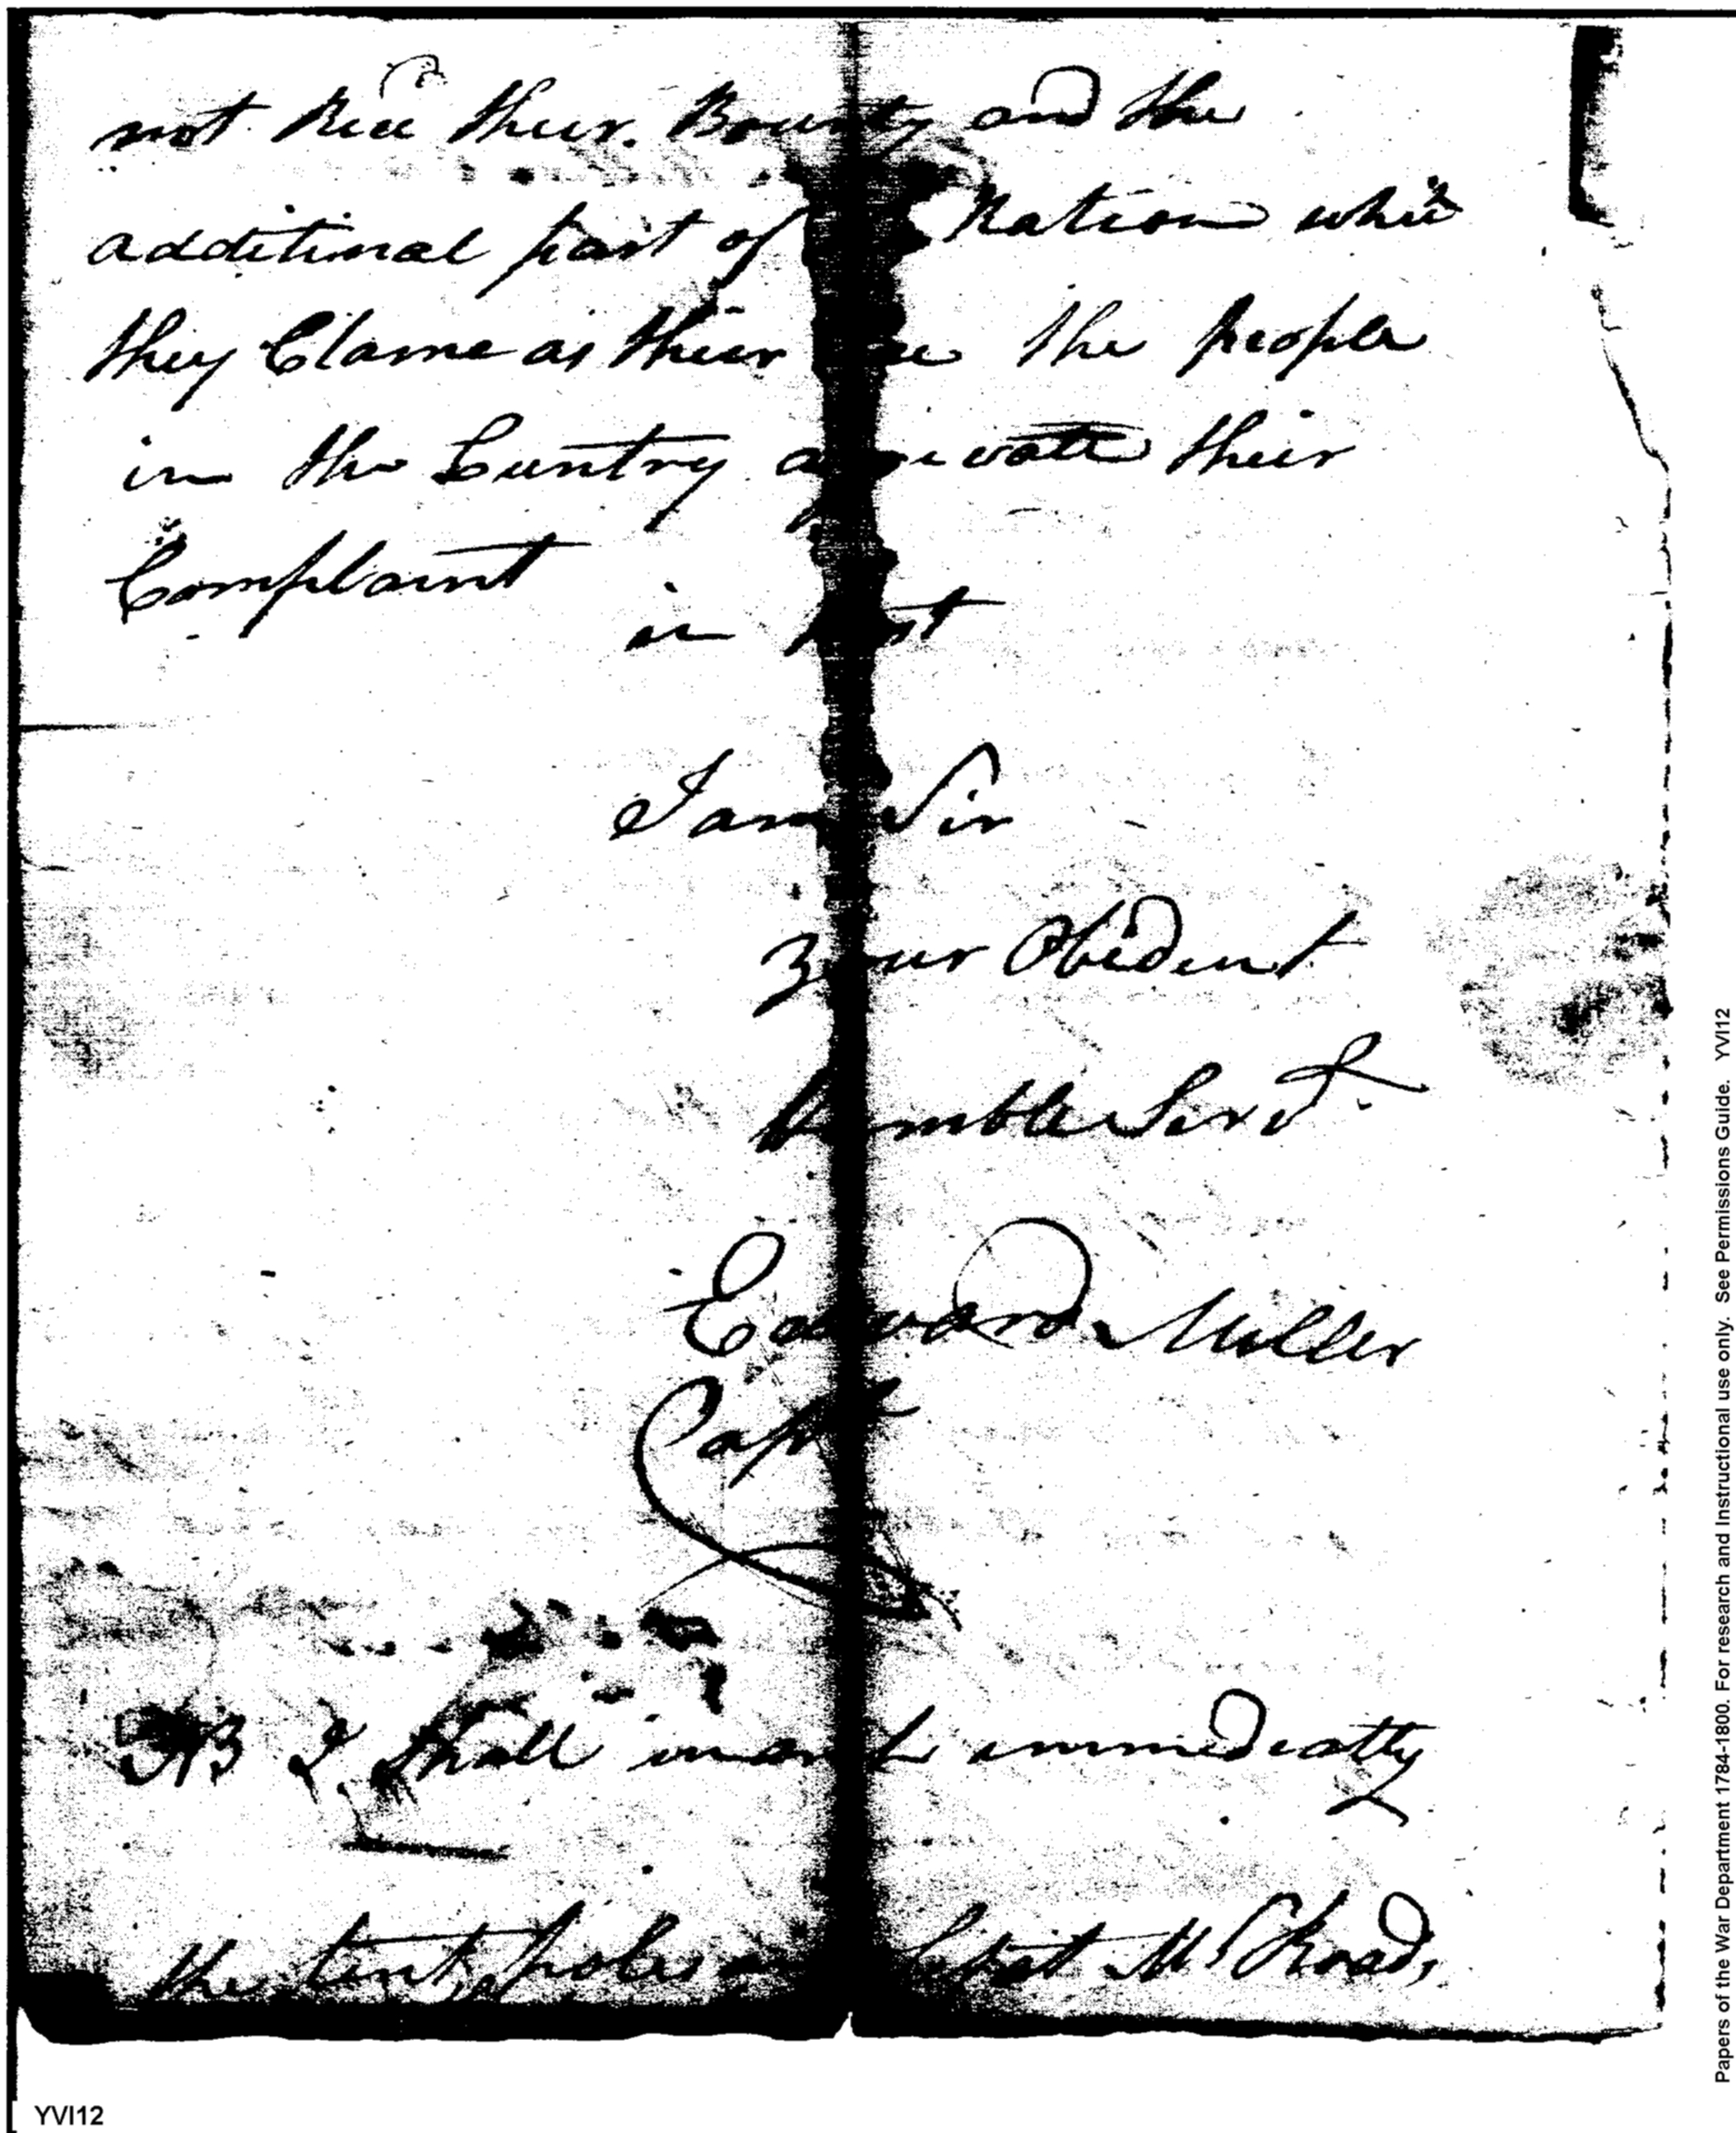 not Recd their Bounty and the
additinal part of Ration which
they Clame as their the people
in the Cuntry their
Complaint
in
I am Sir
your Obedent
humble Servt
Edward Miller
Capt
NB I shall march immediatly
the tent poles
Papers of the War Department 1784-1800. For research and Instructional use only. See Permissions Guide. YVI12
YVI12